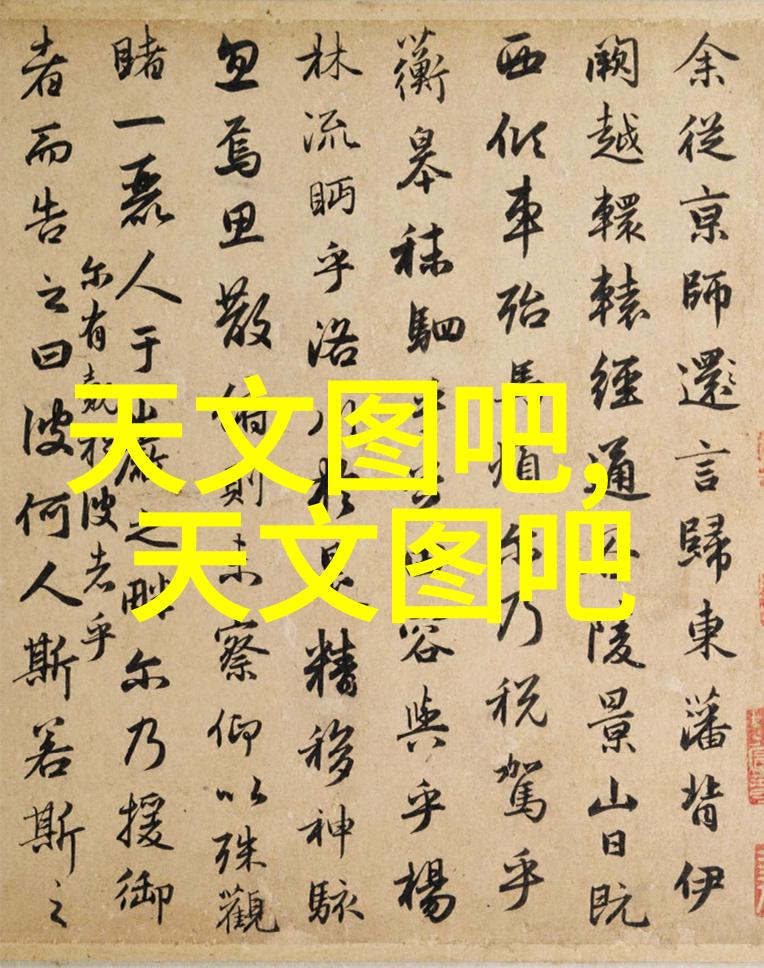 余從京師還言歸東藩背伊
闕越轘轅經通陵景山日既
西傾車殆馬煩尔乃税駕乎
蘅皋秣駟容與乎楊
林流眄乎洛川於是精移神駭
忽焉思散俯則未察仰以殊觀
睹一麗人于巖之畔尔乃援御
尔有覿於彼者乎
者而告之曰彼何人斯若斯之
天文图吧,
天文图吧